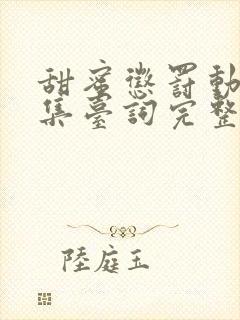 甜蜜懲罰動
集臺詞完整
陸庭玉